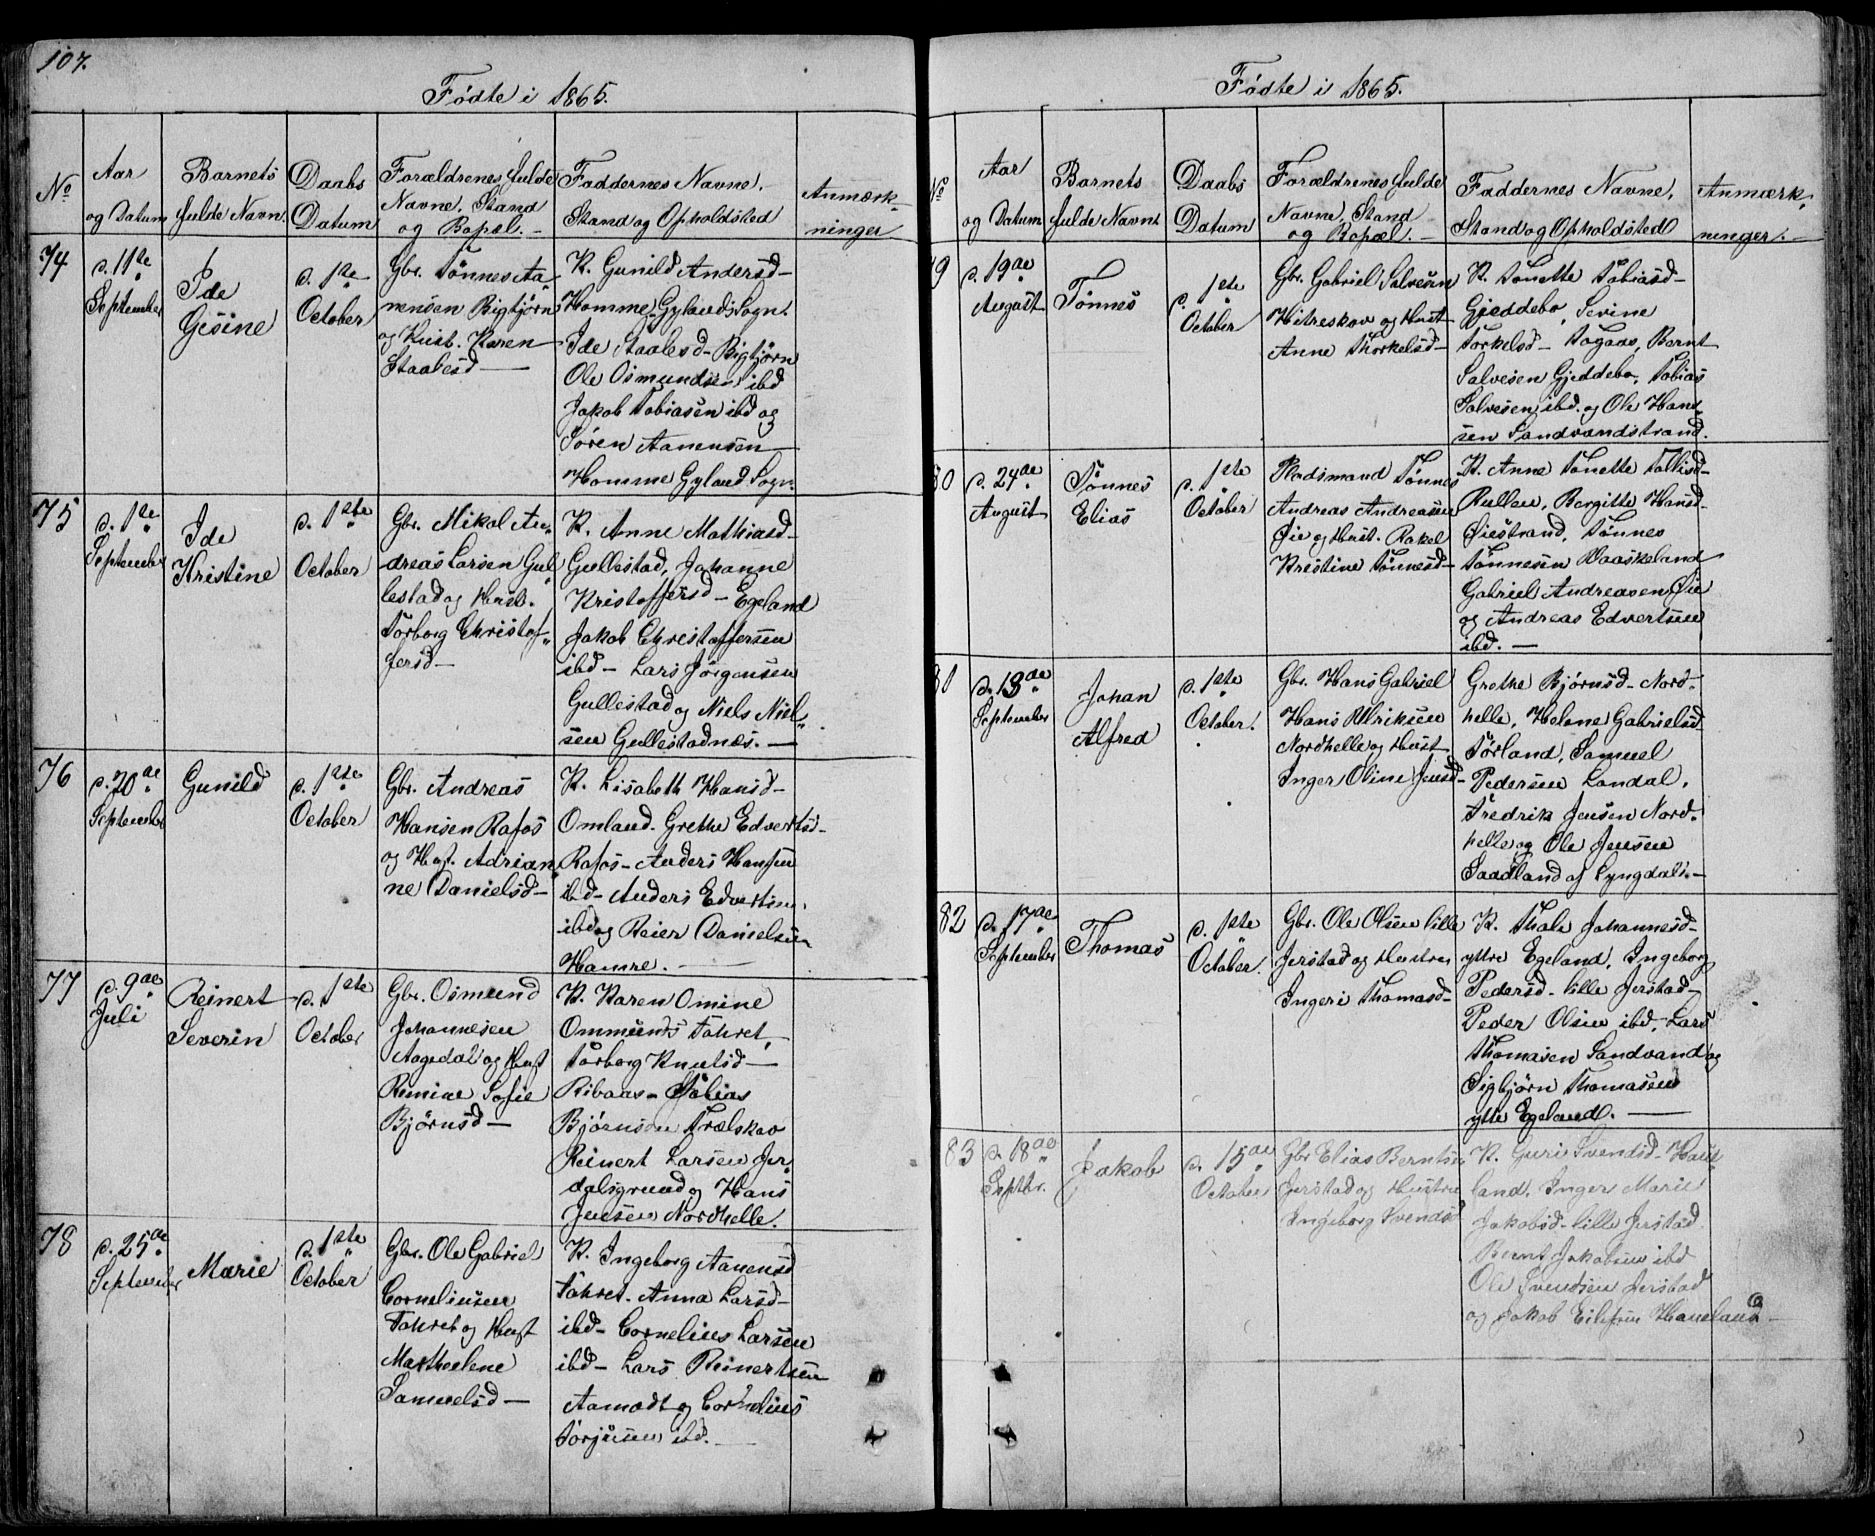 107.
Födte i 1865.
No
Aar
og Datum
Barnets
fulde Navn.
Daabs
Datum
Forældrenes fulde
Navne, Stand
og Bopæl. -
Faddernes Navne,
Stand og Opholdsted
Anmærk-
ninger
74
d. 11te
September
Ide
Gesine
d. 1ste
October
Gbr. Tönnes Aa-
nensen Bigtjörn
og Hust. Karen
Staalesd -
K. Gunild Andersd -
Homme, Gylands Sogn.
Ide Staalesd - Bigtjörn
Ole Osmundsen ibd
Jakob Tobiasen ibd og
Sören Aanensen -
Homme Gyland Sogn.
75
d. 1te
September
Ide
Kristine
d. 1ste
October
Gbr. Mikal An-
dreas Larsen Gul-
lestad og Hust.
Torborg Christof-
fersd -
K. Anne Mathiasd -
Gullestad, Johanne
Kristoffersd - Egeland
Jakob Christoffersen
ibd - Lars Jörgensen
Gullestad og Niels Niel-
sen Gullestadnæs. -
76
d. 20de
September
Gunild
d. 1ste
October
Gbr. Andreas
Hansen Rafos
og Hust. Adrian-
ne Danielsd -
K. Lisabeth Hansd -
Omland. Grethe Edvertsd -
Rafos - Anders Hansen
ibd - Anders Edvertsen
ibd og Reier Danielsen
Hamre. -
77
d. 9de
Juli
Reinert
Severin
d. 1ste
October
Gbr. Osmund
Johannesen
Aagedal og Hust
Remine Sofie
Björnsd -
K. Karen Omine
Ommunds Fahret,
Torborg Knutsd -
Ribaas - Tobias
Björnsen Trælskav
Reinert Larsen Jer-
dalsgrund og Hans
Jensen Nordhelle.
78
d. 25de
September
Marie
d. 1ste
October
Gbr. Ole Gabriel
Corneliusen
Fahret og Hust
Martheelene
Samuelsd -
K. Ingeborg Aanensd
Fahret. Anna Larsd -
ibd - Cornelius Larsen
ibd - Lars Reinertsen
Aamodt og Cornelius
Torjusen ibd. -
Födte i 1865.
No
Aar
og Datum
Barnets
fulde Navn.
Daabs
Datum
Forældrenes fulde
Navne, Stand
og Bopæl. -
Faddernes Navne,
Stand og Opholdsted
Anmærk-
ninger. -
9
d. 19de
August
Tönnes
d. 1ste
October
Gbr. Gabriel Salvesen
Hitreskov og Hust
Anne Thorkelsd -
K. Tonette Tobiasd -
Gjeddebo, Sevine
Torkelsd - Aagaas, Bernt
Salvesen Gjeddebo, Tobias
Salvesen ibd. og Ole Han-
sen Sandvandstrand.
80
d. 24de
August
Tönnes
Elias
d. 1ste
October
Pladsmand Tönnes
Andreas Andreasen
Öie og Hust. Rakel
Kristine Tönnesd -
K. Anne Tonette Tollisd -
Rullen, Bergitte Hansd -
Öiestrand, Tönnes
Tönnesen Vaaskeland
Gabriel Andreasen Öie
og Andreas Edvertsen
ibd. -
81
d. 13de
September
Johan
Alfred
d. 1ste
October.
Gbr. Hans Gabriel
Hans Ulriksen
Nordhelle og Hust
Inger Oline Jensd -
Grethe Björnsd - Nord-
helle, Helene Gabrielsd
Törland, Samuel
Pedersen Landal,
Fredrik Jensen Nord-
helle og Ole Jensen
Saadland af Lyngdal. -
82
d. 17de
September
Thomas
d. 1ste
October.
Gbr. Ole Olsen lille
Jerstad og Hustru
Ingeri Thomasd -
K. Thale Johannesd -
yttre Egeland, Ingeborg
Pedersd - lille Jerstad -
Peder Olsen ibd, Lars
Thomasen Sandvand og
Sigbjörn Thomasen
yttre Egeland. -
83
d. 18de
Septbr.
Jakob
d. 15de
October
Gbr Elias Berntsen
Jerstad og Hustru
Ingeborg Svendsd
K. Guri Svendsd - Haue-
land, Inger Marie
Jakobsd - lille Jerstad
Bernt Jakobsen ibd
Ole Svendsen Jerstad
og Jakob Eilefsen Haueland -